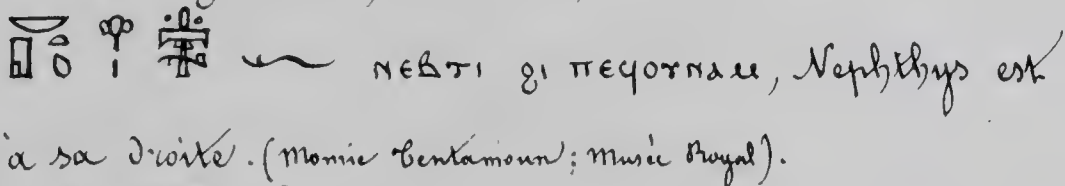 ⲛⲉⲃⲧⲓ ϩⲓ ⲡⲉϥⲟⲩⲛⲁⲙ, Nephthys est
à sa droite. (Momie Tentamoun; Musée Royal).